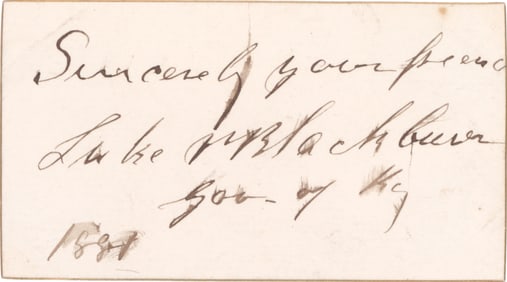 Sincerely your friend
Luke P Blackburn
Gov- of Ky
1881